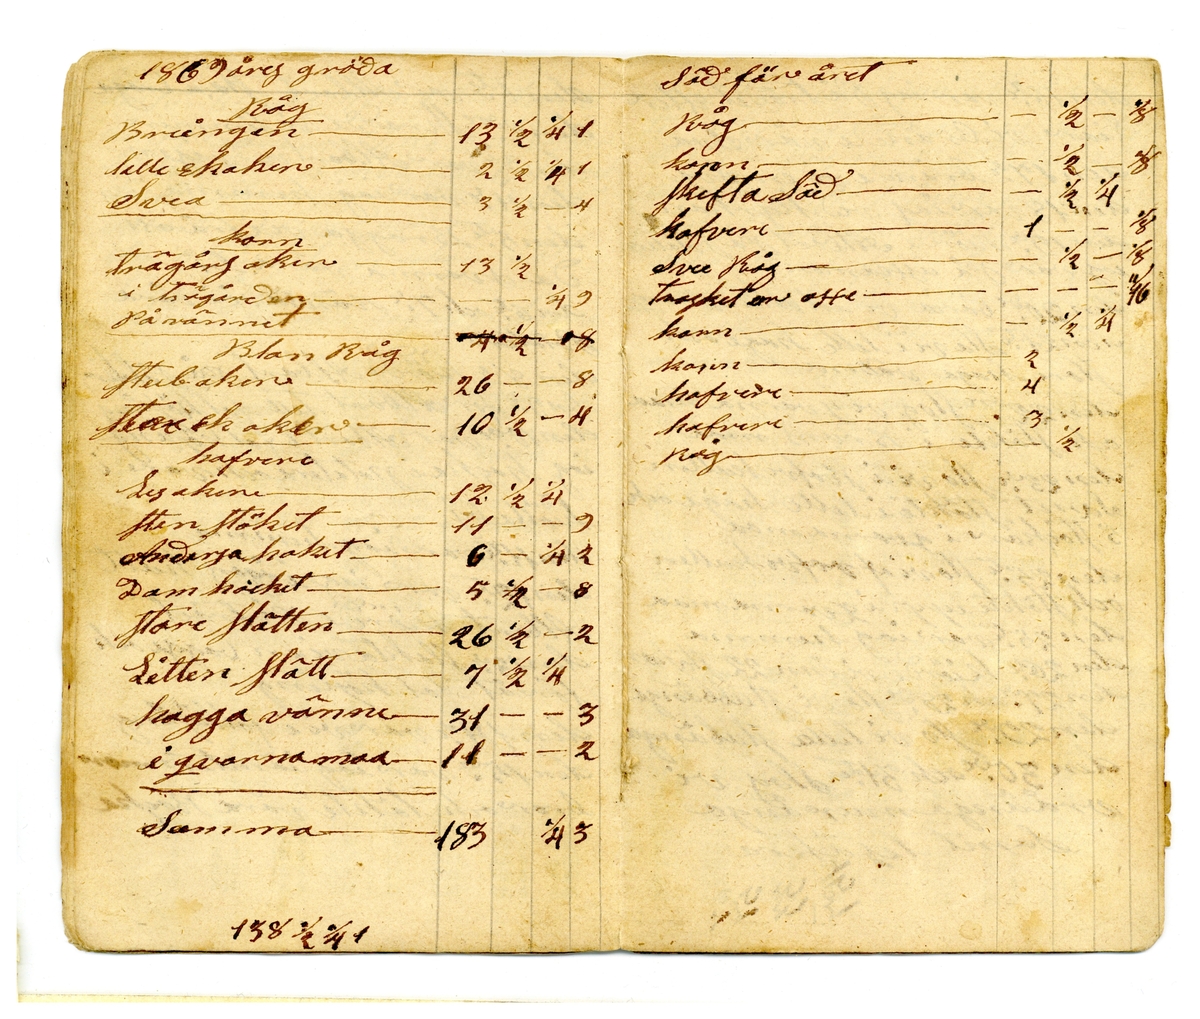 1869 års gröda
Råg
Briängen 12 1/2 1/4 1
lille ekaken 2 1/2 1/4 1
Svea 3 1/2 — 4
korn
trägårs aken 13 1/2
i trägården — — 1/4 9
På vännet 4 1/2 — 8
Blan Råg
stubaken 26 — — 8
ekaken 10 1/2 — 4
hafvere
Lisaken 12 1/2 1/4
sten stöket 11 — — 9
Andersa haket 6 — 1/4 2
Damhöcket 5 1/2 — 8
store slätten 26 1/2 — 2
Litten slätt 7 1/2 1/4
hagga vänne 31 — — 3
i qvarnamaa 11 — — 2
Summa 183 1/4 3
138 1/2 1/4 1
Säd för året
Råg — 1/2 — 1/8
korn — 1/2 — 1/8
skifta Säd — 1/2 1/4
hafvere 1 — — 1/8
Svee Råg — 1/2 — 1/8
— — — 1/16
korn — 1/2 1/4
korn 2
hafvere 4
hafvere 3
Råg 1/2